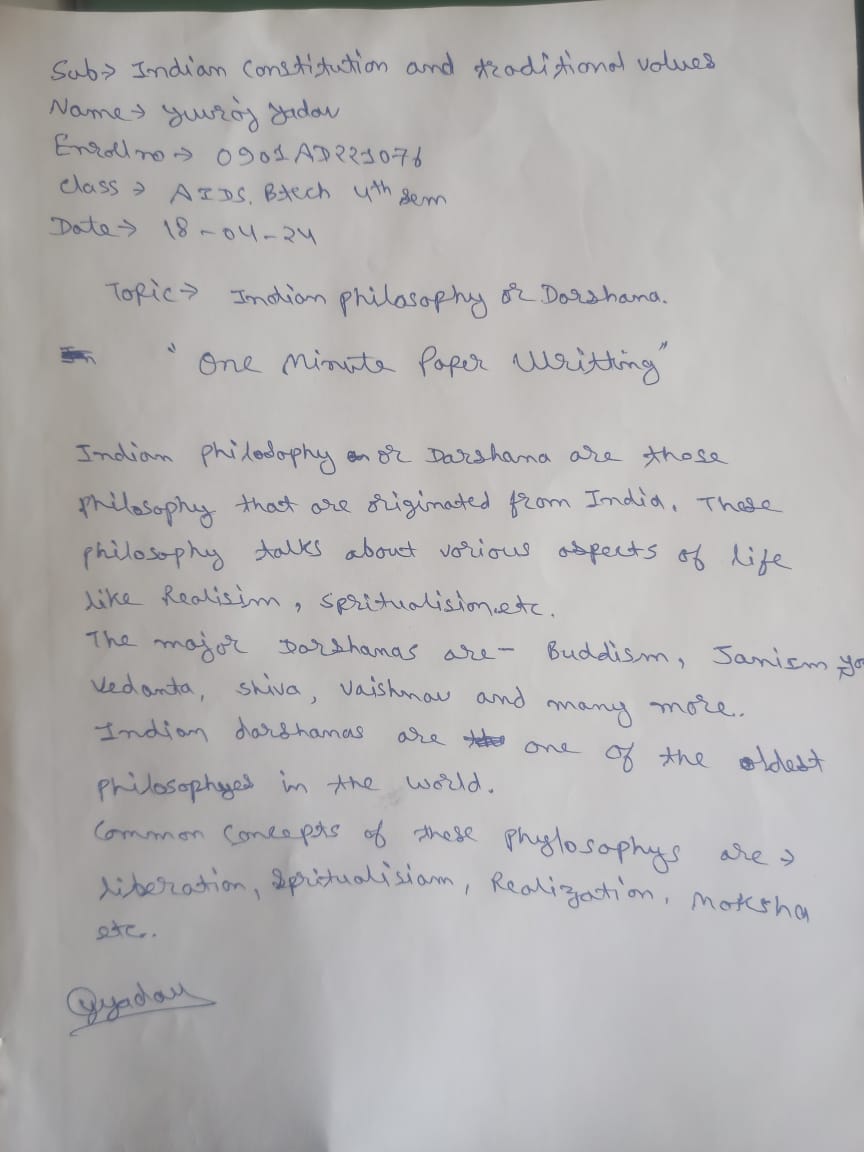 Sub→ Indian Constitution and traditional values
Name→ yuvraj yadav
Enroll no → 0901AD221076
Class → AIDS. Btech 4th Sem
Date→ 18-04-24
Topic→ Indian philosophy or Darshana.
"One Minute Paper Writting"
Indian philosophy or Darshana are those
philosophy that are originated from India. These
philosophy talks about various aspects of life
like Realisim, Spritualision.etc.
The major Darshanas are- Buddism, Janism
Vedanta, shiva, vaishnav and many more.
Indian darshanas are one of the oldest
philosophyes in the world.
Common Concepts of these phylosophys are →
liberation, Spritualisiam, Realization, Moksha
etc.
yyadav